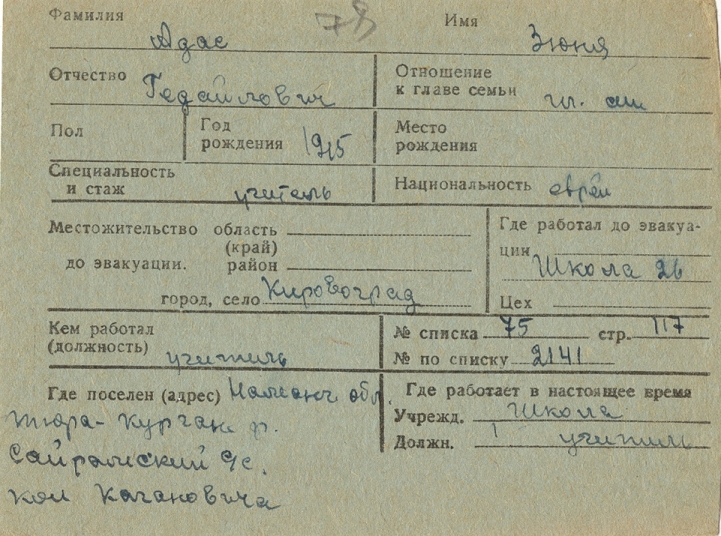 Фамилия Адас
Имя Зюня
Отчество Гедайлович
Отношение
к главе семьи гл. сем
Пол
Год
рождения 1915
Место
рождения
Специальность
и стаж учитель
Национальность еврей
Местожительство область
(край)
до эвакуации. район
город, село Кировоград
Где работал до эвакуа-
ции Школа 26
Цех
Кем работал
(должность) учитель
№ списка 75 стр. 117
№ по списку 2141
Где поселен (адрес) Наманг обл.
Тюра-Курган р.
Сайрамский с/с.
кол Кагановича
Где работает в настоящее время
Учрежд. Школа
Должн. учитель